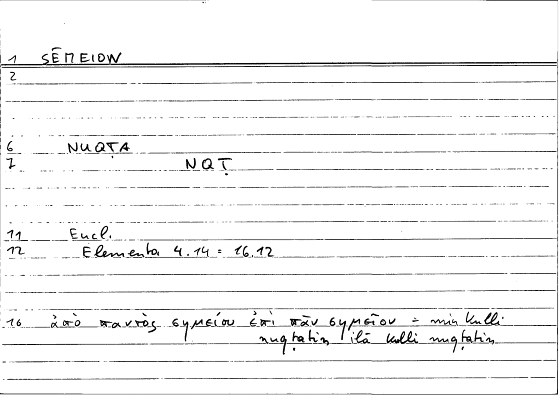 1 SĒMEION
2
6 NUQṬA
7 NQṬ
11 Eucl.
12 Elementa 4.14 = 16.12
16 ἀπὸ παντὸς σημείου ἐπὶ πᾶν σημεῖον = min kulli
nuqṭatin ilā kulli nuqṭatin